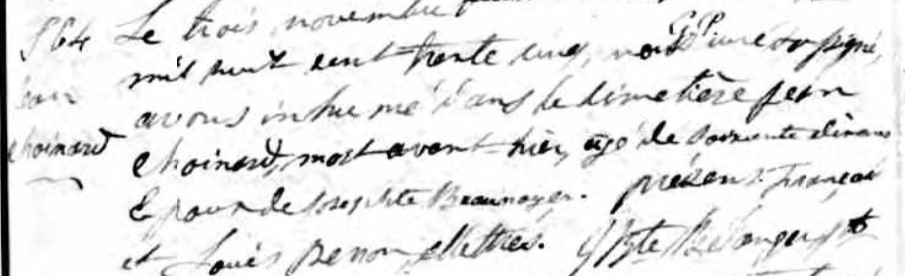 S64 Le trois novembre
mil huit cent trente cinq, nous P. curé soussigné,
Jean avons inhumé dans le cimetière jean
choinard choinard, mort avant hier, agé de soixante dix ans
Epoux de Josephte Beaunoyer. présens françois
et Louis Benom illettrés. J Bte Bélanger ptr